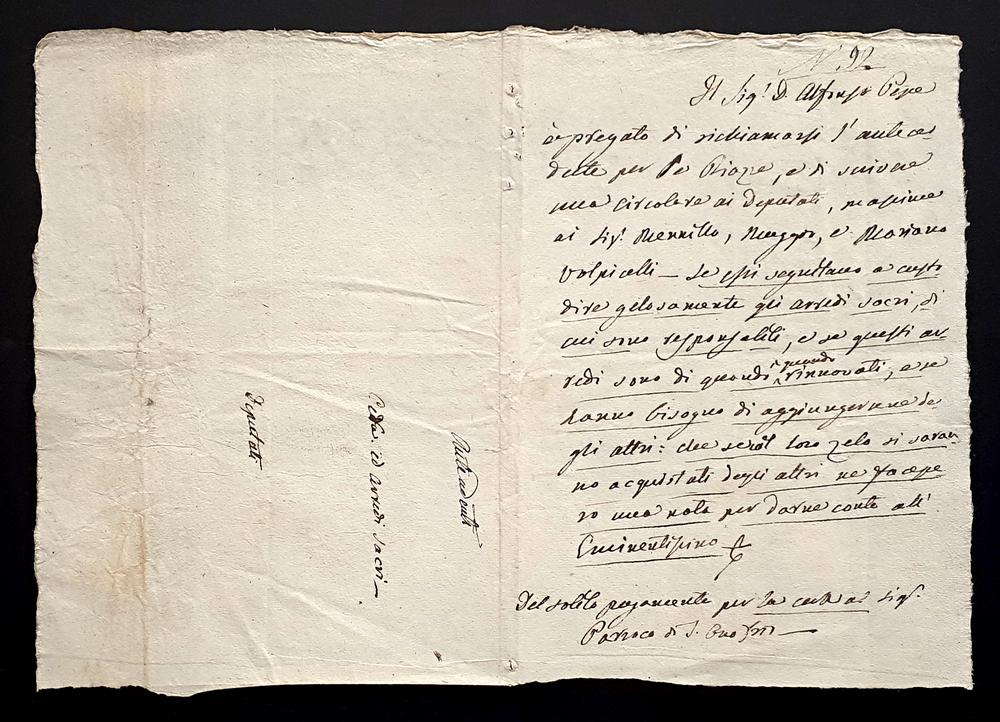 N. 92
Il Sig.r D. Alfonso Pepe
è pregato di richiamarsi l'antece
dente per Pe, e di scrivere
una circolare ai Deputati, massime
ai Sig.i Merrillo, Maggio, e Mariano
Volpicelli — Se essi seguitano a custo
dire gelosamente gli arredi sacri, di
cui sono responsabili, e se questi ar
redi sono di quando in quando rinnovati, e se
hanno bisogno di aggiungervene de
gli altri: che se col loro zelo si saran
no acquistati degli altri ne facesse
ro una nota per darne conto all'
Eminentissimo
Del solito pagamento per la al Sig.r
Parroco di S. Onofrio —
ed arredi sacri —
Deputati